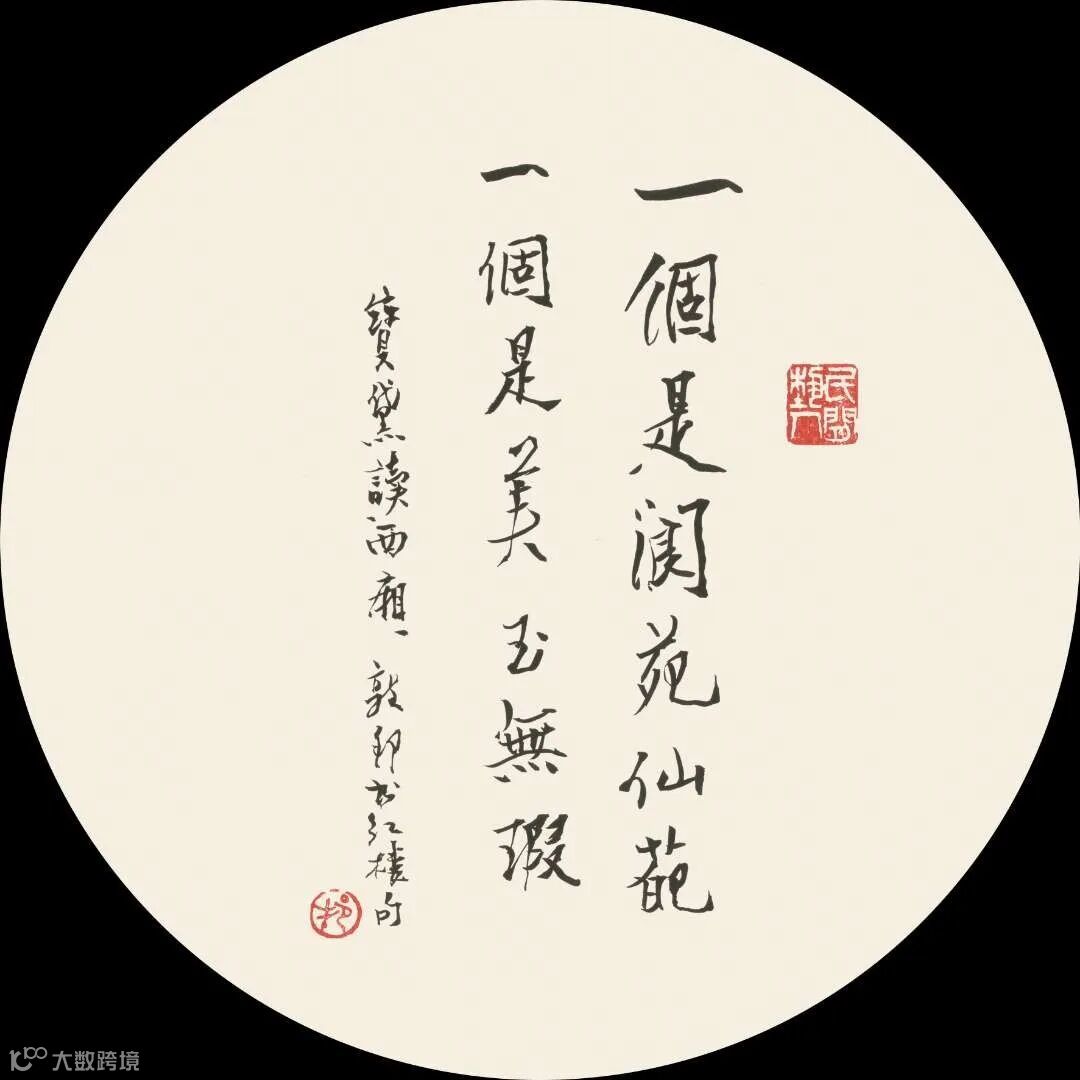 民間藝人
一個是閬苑仙葩
一個是美玉無瑕
寶黛讀西廂、敦邦書紅樓句
邦
大数跨境